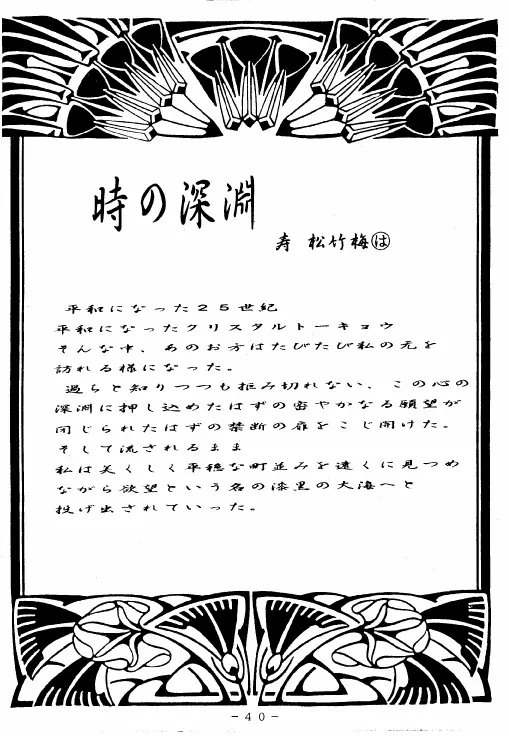 時の深淵
寿 松竹梅は
平和になった25世紀
平和になったクリスタルトーキョウ
そんな中、あのお方はたびたび私の元を
訪れる様になった。
過ちと知りつつも拒み切れない、この心の
深淵に押し込めたはずの密やかなる願望が
閉じられたはずの禁断の扉をこじ開けた。
そして流されるまま
私は美しく平穏な町並みを遠くに見つめ
ながら欲望という名の漆黒の大海へと
投げ出されていった。
-40-